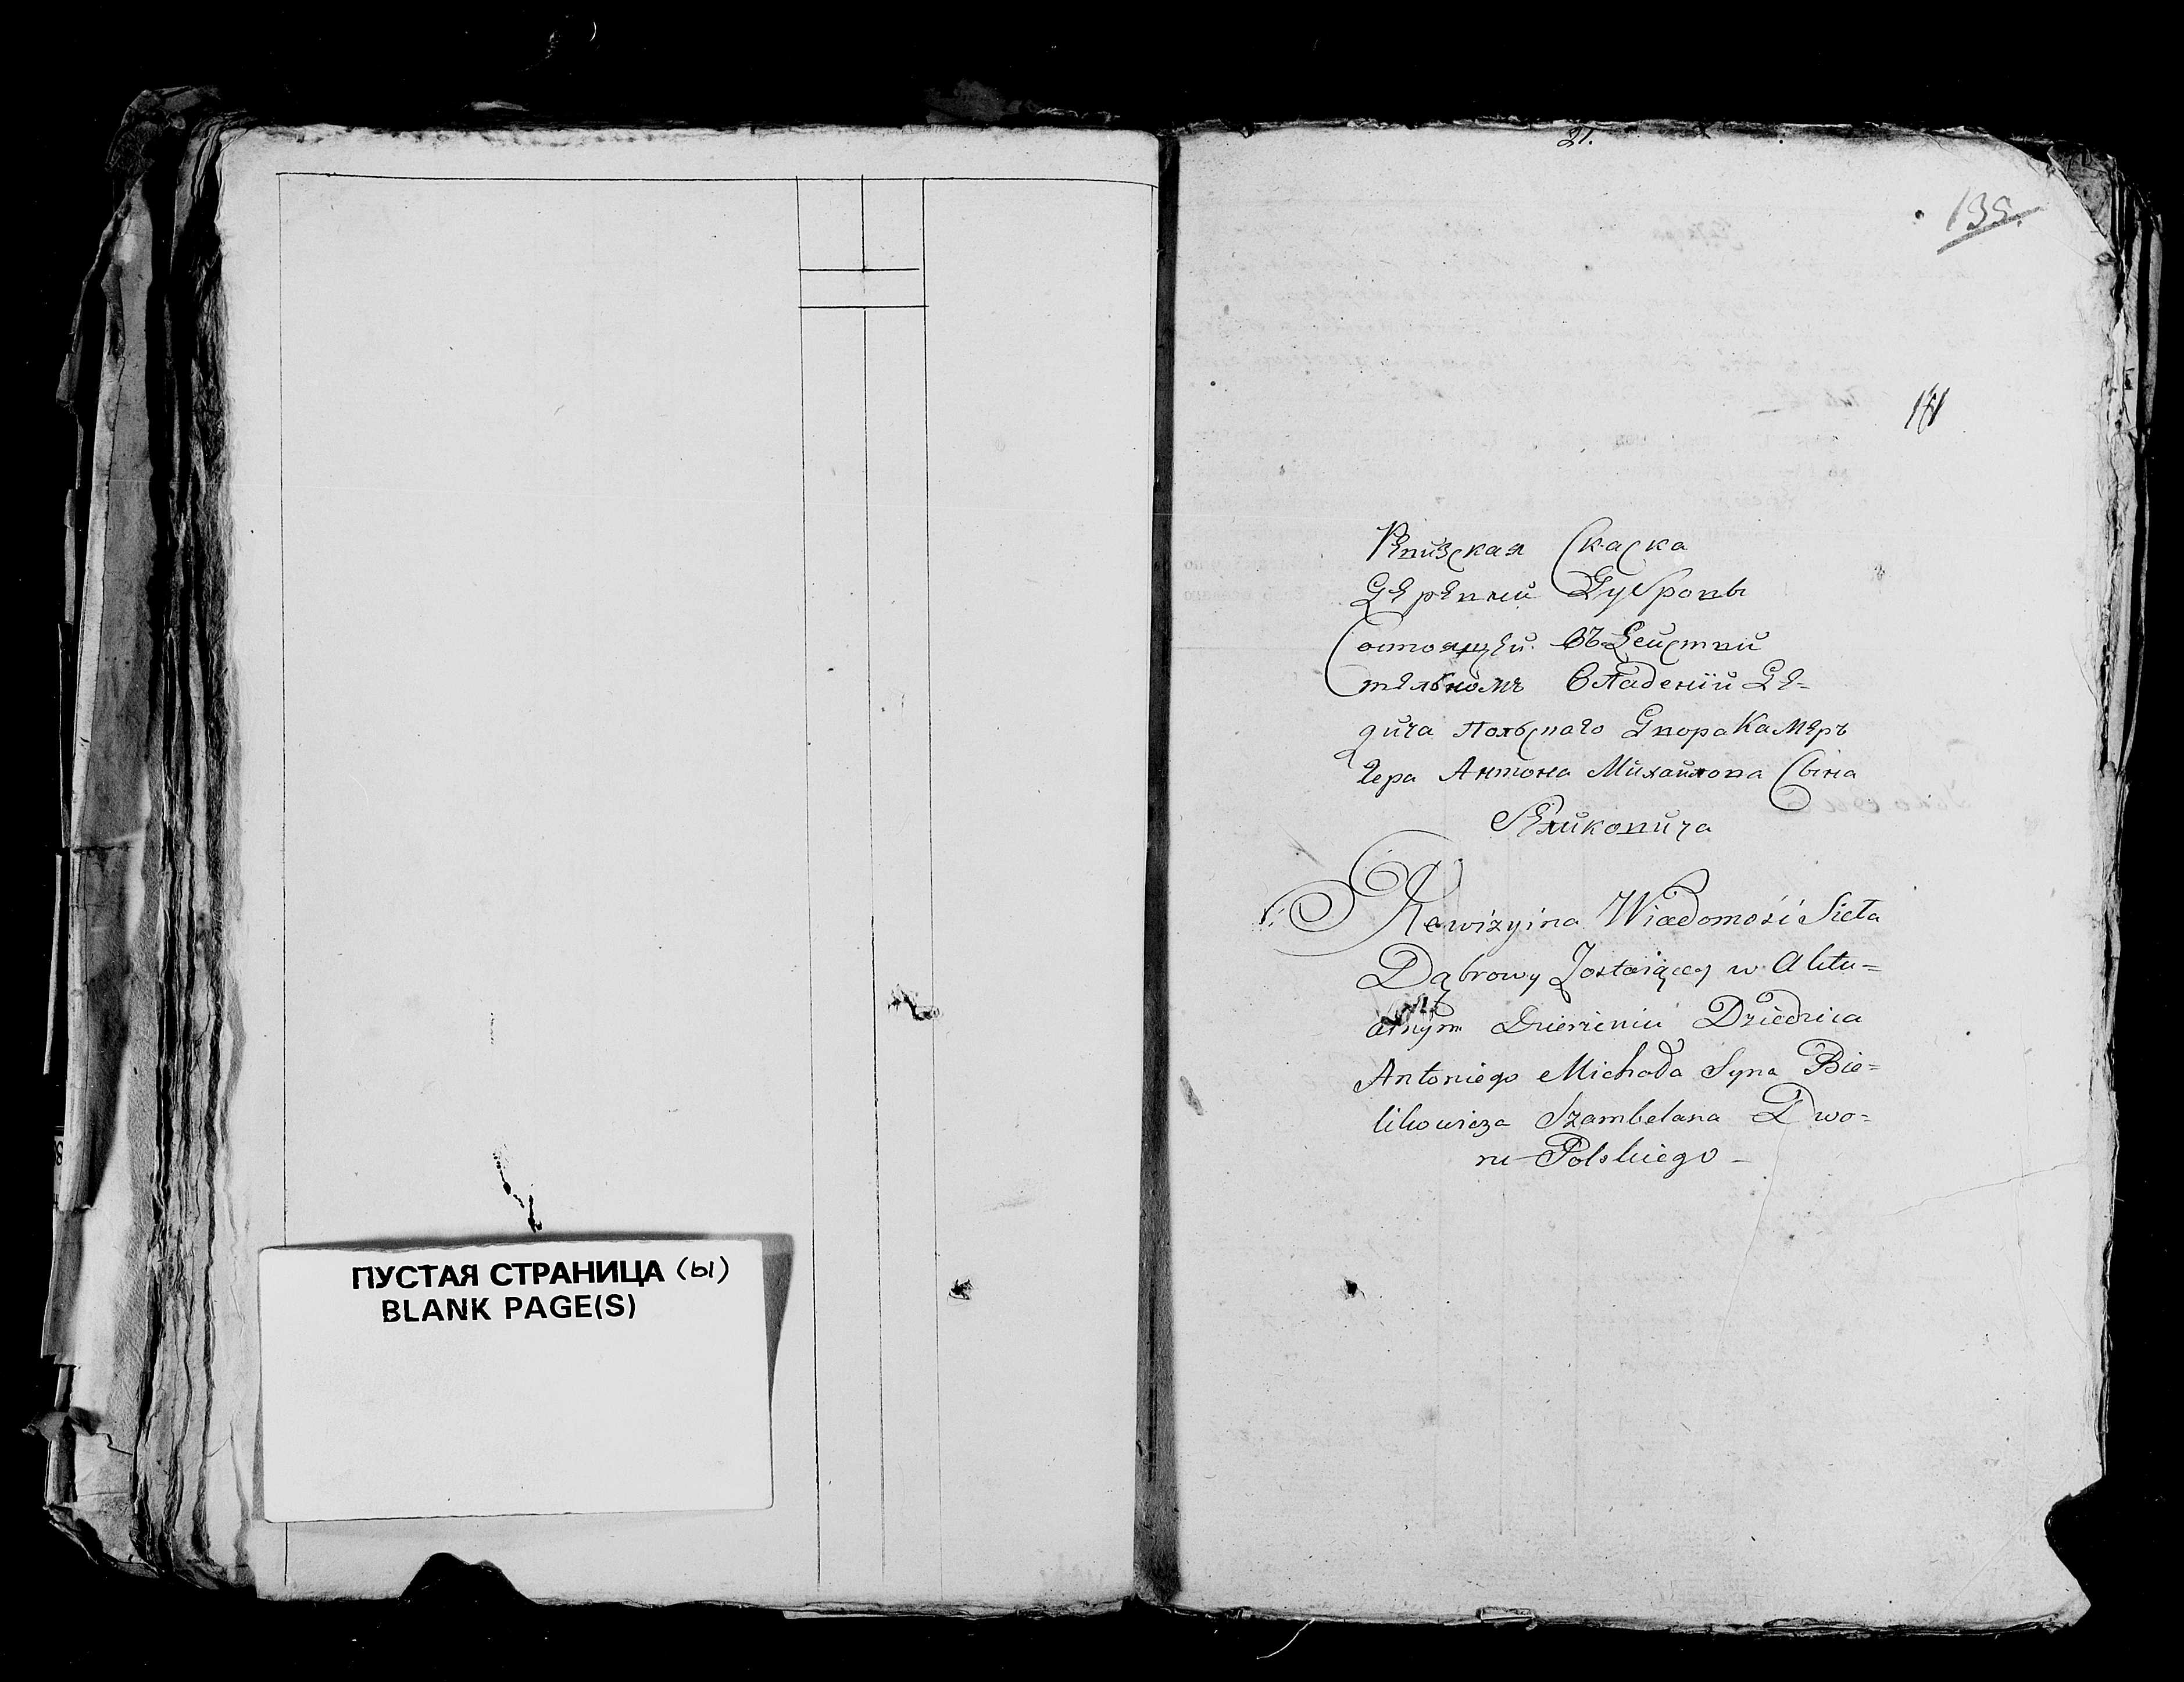 ПУСТАЯ СТРАНИЦА (ы)
BLANK PAGE(S)
21.
135.
Ревизская Скаска
Деревни Дубровы
Состоящей въ Действи
тельномъ Владении Де-
дича Польскаго Двора Камер
гера Антона Михайлова Сына
Беликовича
Rewizyina Wiadomość Sieła
Dąbrowy Zostaiącey w Aktu=
alnym Dzierżeniu Dziedzica
Antoniego Michała Syna Bie=
likowicza Szambelana Dwo=
ru Polskiego –